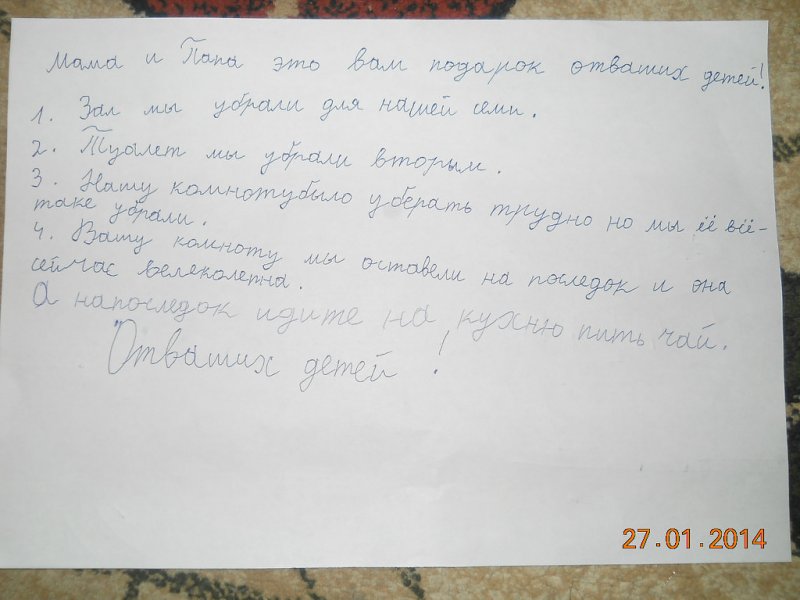 Мама и Папа это вам подарок отваших детей!
1. Зал мы убрали для нашей семи.
2. Туалет мы убрали вторым.
3. Нашу комнотубыло уберать трудно но мы её всё-
таке убрали.
4. Вашу комноту мы оставели на последок и она
сейчас велеколепна.
А напоследок идите на кухню пить чай.
Отваших детей!
27.01.2014